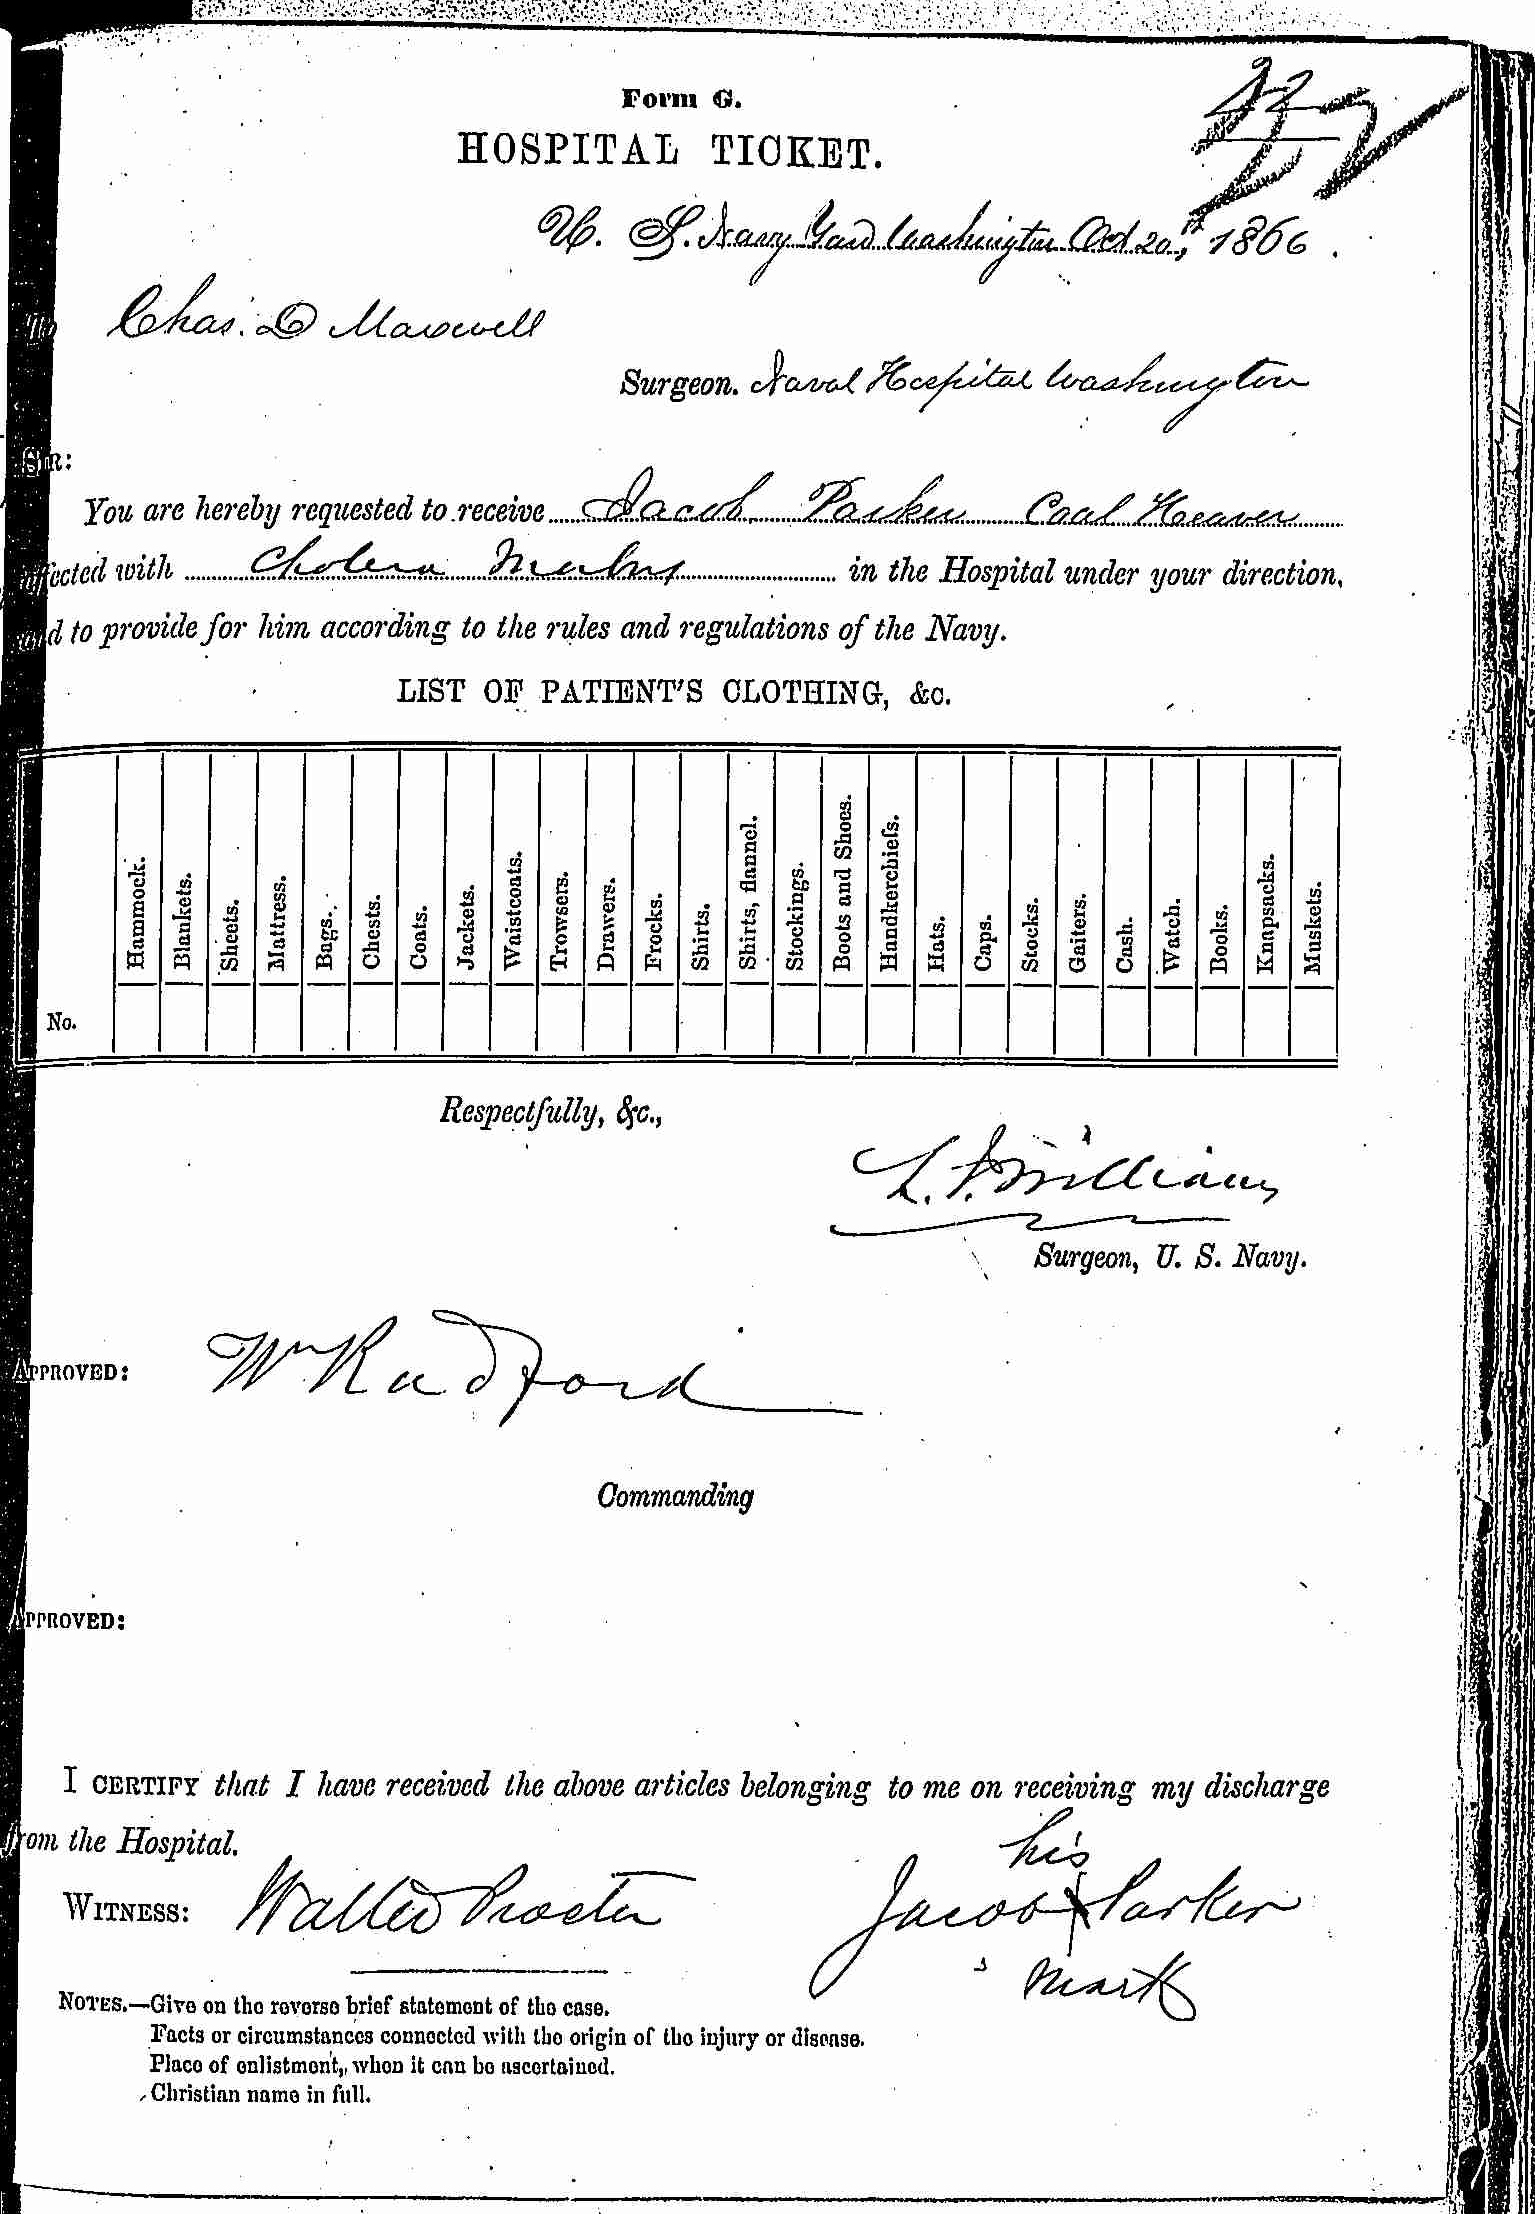 Form G.
HOSPITAL TICKET.
U. S. Navy Yard Washington Oct 20th, 1866.
To Chas. D Maxwell
Surgeon. Naval Hospital Washington
SIR:
You are hereby requested to receive Jacob Parker Coal Heaver
affected with Cholera Morbus in the Hospital under your direction,
and to provide for him according to the rules and regulations of the Navy.
LIST OF PATIENT'S CLOTHING, &c.
Hammock. Blankets. Sheets. Mattress. Bags. Chests. Coats. Jackets. Waistcoats. Trowsers. Drawers. Frocks. Shirts. Shirts, flannel. Stockings. Boots and Shoes. Handkerchiefs. Hats. Caps. Stocks. Gaiters. Cash. Watch. Books. Knapsacks. Muskets.
No.
Respectfully, &c.,
Williams
Surgeon, U. S. Navy.
APPROVED: Wm Radford
Commanding
APPROVED:
I CERTIFY that I have received the above articles belonging to me on receiving my discharge
from the Hospital.
his
WITNESS: Walter Procter Jacob X Parker
mark
NOTES.—Give on the reverse brief statement of the case.
Facts or circumstances connected with the origin of the injury or disease.
Place of enlistment, when it can be ascertained.
Christian name in full.